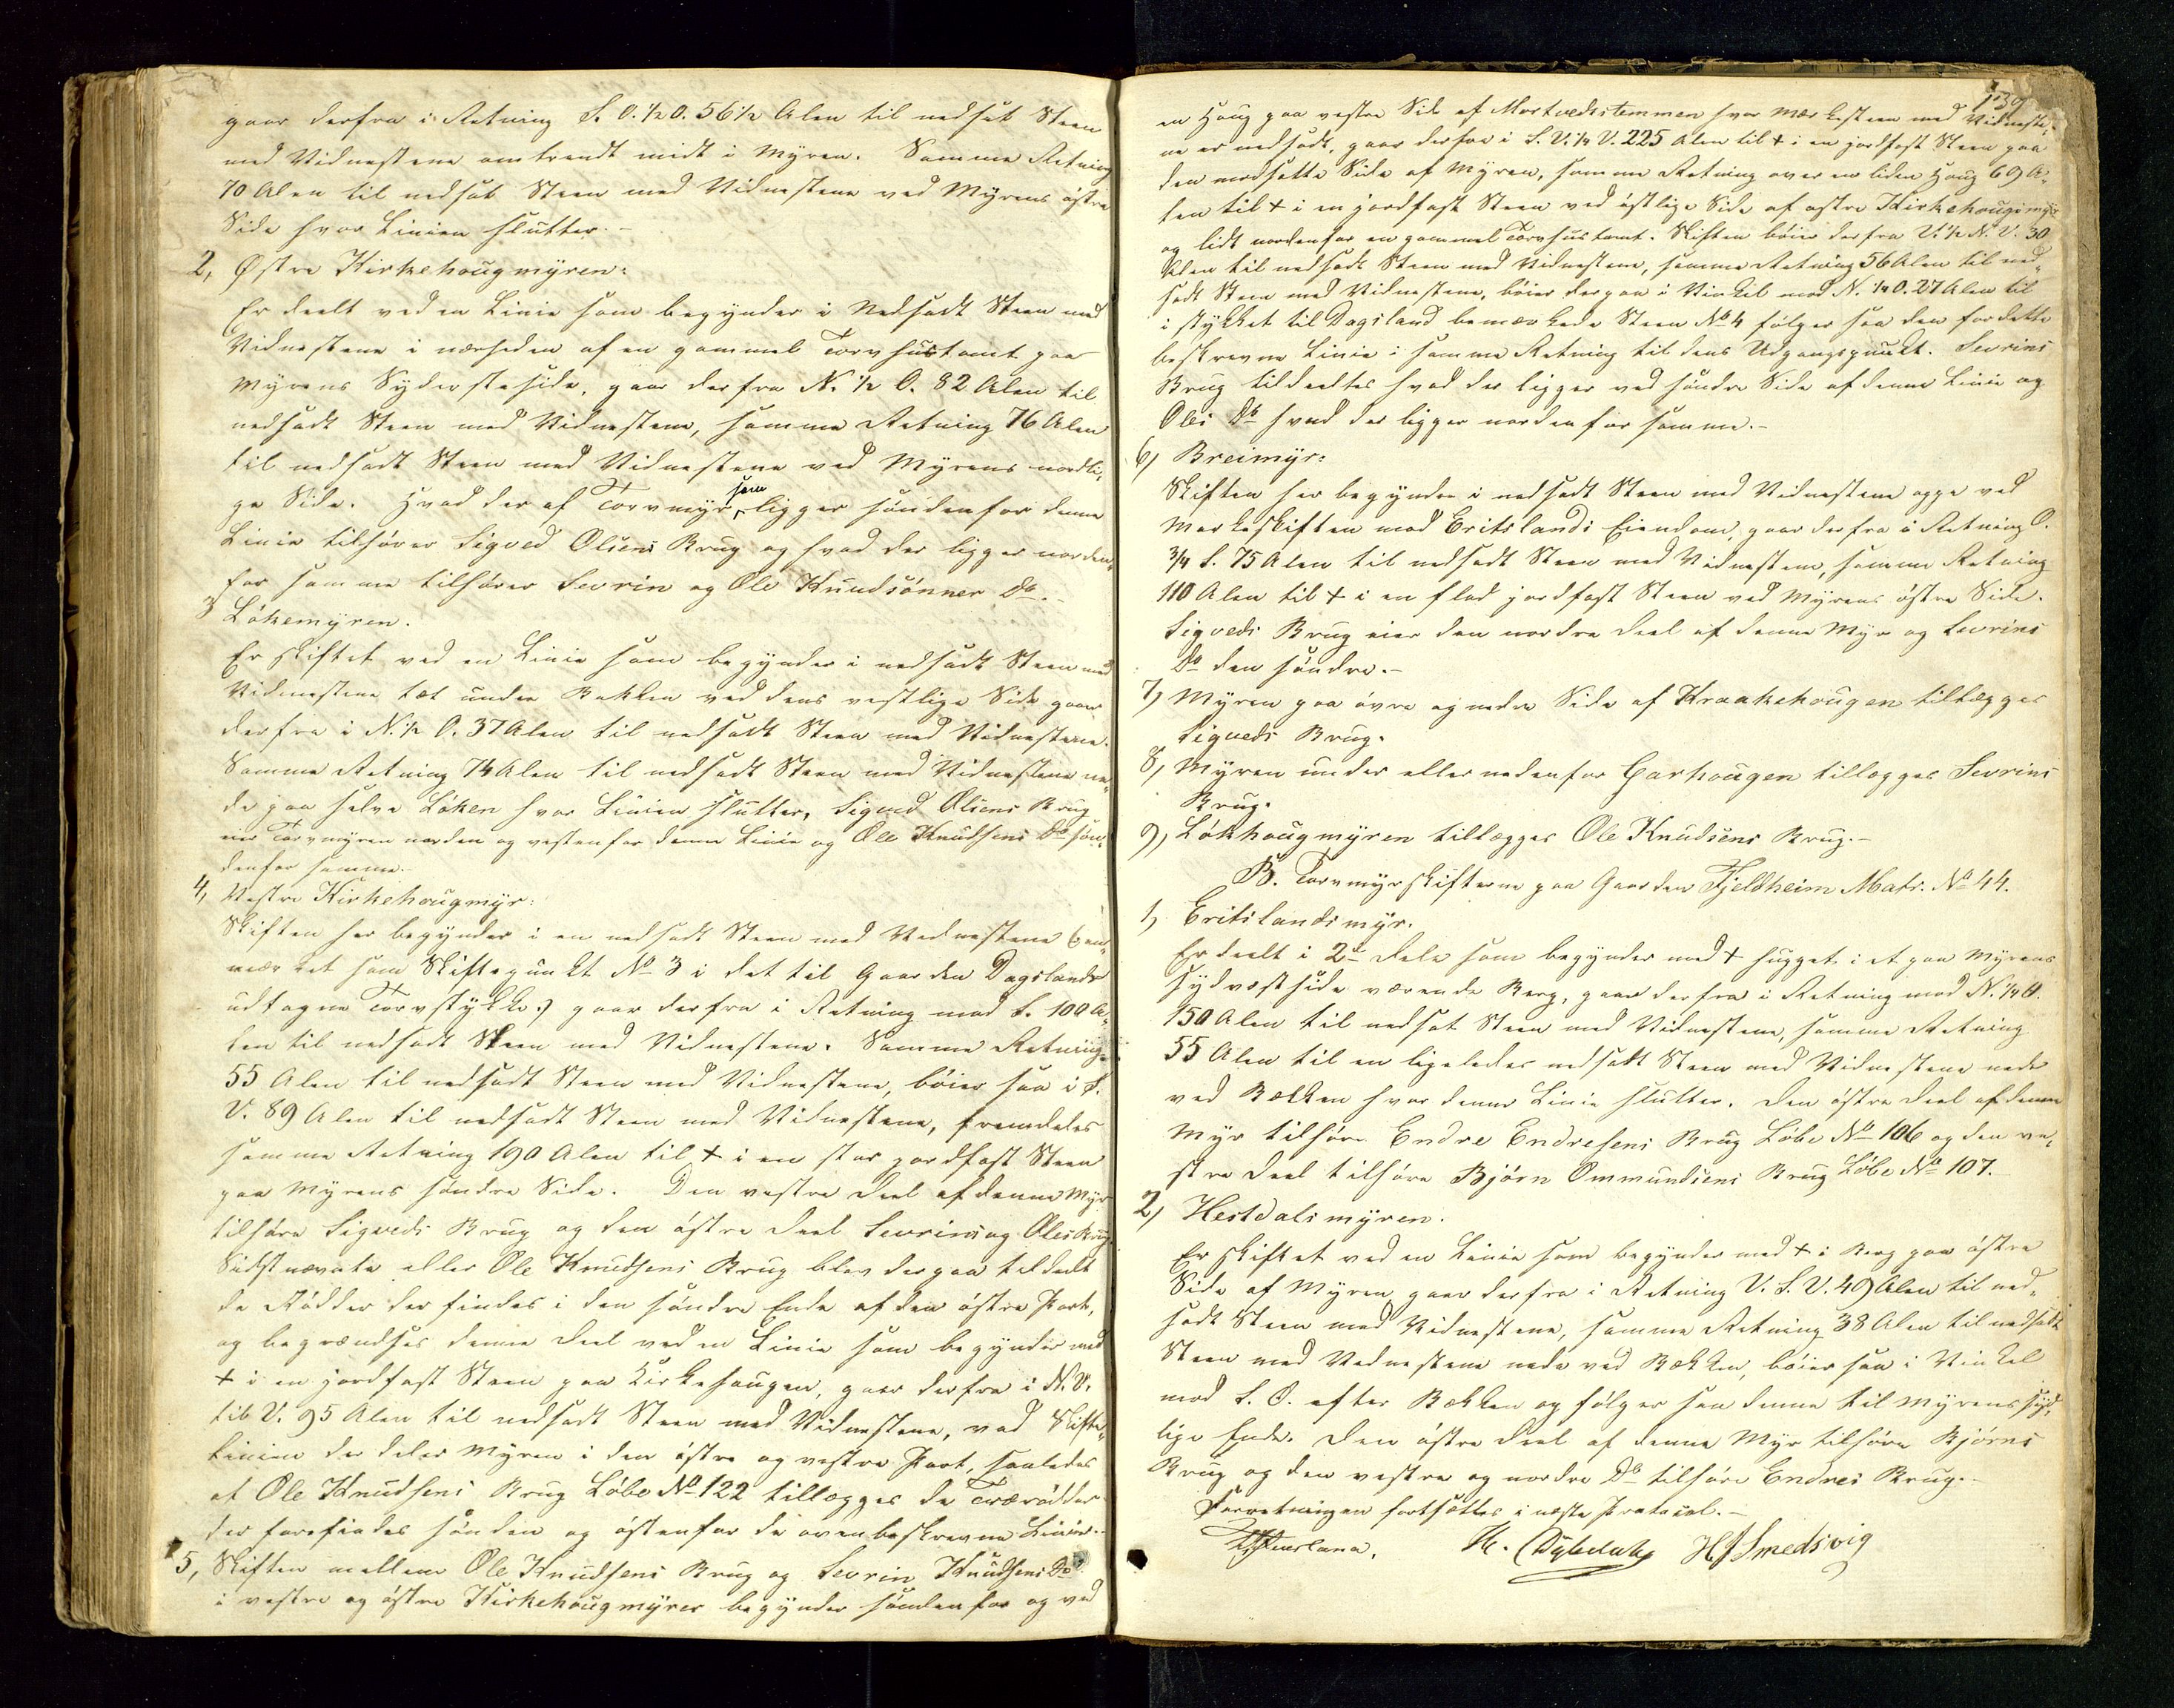 gaar derfra i Retning S. O. ½ O. 56½ Alen til nedsat Steen
med Vidnestene omtrendt midt i Myren. Samme Retning
70 Alen til nedsat Steen med Vidnestene ved Myrens østre
Side hvor Linien slutter.-
2, Østre Kirkehougmyren:
Er deelt ved en Linie som begynder i Nedsadt Steen med
Vidnestene i nærheden af en gammel Torvhustomt paa
Myrens Sydersteside, gaar derfra N. ½ O. 82 Alen til
nedsadt Steen med Vidnestene, samme Retning 76 Alen
til nedsadt Steen med Vidnestene ved Myrens nordli-
ge Side. Hvad der af Torvmyr som ligger søndenfor denne
Linie tilhører Sigved Olsens Brug og hvad der ligger norden-
for samme tilhører Sevrin og Ole Knudsønner Do.-
3 Løkemyren.
Er skiftet ved en Linie som begynder i nedsadt Steen med
Vidnestene tæt under Bakken ved dens vestlige Side gaar
derfra i N. ½ O. 37 Alen til nedsadt Steen med Vidnestene.
Samme Retning 74 Alen til nedsadt Steen med Vidnestene ne-
de paa selve Løken hvor Linien slutter, Sigved Olsens Brug
eier Torvmyren norden og vestenfor denne Linie og Ole Knudsens Do søn-
denfor samme.-
4, Vestre Kirkehougmyr:
Skiften her begynder i en nedsadt Steen med Vidnestene (bem-
ærket som Skiftepunkt No 3 i det til Gaarden Dagslands
udtagne Torvstykke) gaar derfra i Retning mod S. 100 A-
len til nedsadt Steen med Vidnestene. Samme Retning
55 Alen til nedsadt Steen med Vidnestene, bøier saa i S.
V. 89 Alen til nedsadt Steen med Vidnestene, fremdeles
samme Retning 190 Alen til + i en stor jordfast Steen
paa Myrens søndre Side. Den vestre Deel af denne Myr
tilhøre Sigveds Brug og den østre Deel Sevrins og Oles Brug.
Sidstnævnte eller Ole Knudsens Brug blev derpaa tildeelt
de Rødder der findes i den søndre Ende af den østre Part,
og begrændses denne Deel ved en Linie som begynder med
+ i en jordfast Steen paa Kirkehougen, gaar derfra i N. V.
til V. 95 Alen til nedsadt Steen med Vidnestene, ved Skifte-
linien der deler Myren i den østre og vestre Part, saaledes
at Ole Knudsens Brug Løbe No 122 tillægges de Trærødder
der forefindes sønden og østenfor de ovenbeskrevne Linier.-
5, Skiften mellem Ole Knudsens Brug og Sevrin Knudsens Do
i vestre og østre Kirkehougmyrer begynder søndenfor og ved
139
en Houg paa vestre Side af Mortvedstemmen hvor Mærkesteen med Vidneste-
ne er nedsadt, gaar derfra i S. V. ¼ V. 225 Alen til + i en jordfast Steen paa
den modsatte Side af Myren, samme Retning over en liden Houg 69 A-
len til + i en jordfast Steen ved østlige Side af østre Kirkehougsmyr
og lidt nordenfor en gammel Torvhustomt. Skiften bøier derfra V. ½ N. V. 30
Alen til nedsadt Steen med Vidnestene, samme Retning 56 Alen til ned-
sadt Steen med Vidnestene, bøier derpaa i Vinkel mod N. ¼ O. 27 Alen til
i stykket til Dagsland bemærkede Steen No 4 følger saa den for dette
beskrevne Linie i samme Retning til dens Udgangspunkt. Sevrins
Brug tildeeltes hvad der ligger ved søndre Side af denne Linie og
Oles Do hvad der ligger nordenfor samme.-
6, Breimyr:
Skiften her begynder i nedsadt Steen med Vidnestene oppe ved
Markeskiften mod Eritslands Eiendom, gaar derfra i Retning O.
¾ S. 75 Alen til nedsadt Steen med Vidnestene, samme Retning
110 Alen til + i en flad jordfast Steen ved Myrens østre Side.
Sigveds Brug eier den nordre Deel af denne Myr og Sevrins
Do den søndre.-
7, Myren paa øvre og nedre Side af Kraakehougen tillægges
Sigveds Brug.
8, Myren under eller nedenfor Garhougen tillægges Sevrins
Brug.
9, Løkhougmyren tillægges Ole Knudsens Brug.-
B. Torvmyrskifterne paa Gaarden Fjeldheim Matr. No 44.
1, Eritslandsmyr.
Er deelt i 2de Dele som begynder med + hugget i et paa Myrens
Sydvestside værende Berg, gaar derfra i Retning mod N. ¼ O.
150 Alen til nedsat Steen med Vidnestene, samme Retning
55 Alen til en ligeledes nedsatt Steen med Vidnestene nede
ved Bækken hvor denne Linie slutter. Den østre Deel af denne
Myr tilhøre Endre Endresens Brug Løbe No 106 og den ve-
stre Deel tilhøre Bjørn Ommundsens Brug Løbe No 107.
2, Hestdalsmyren.
Er skiftet ved en Linie som begynder med + i Berg paa østre
Side af Myren gaar derfra i Retning V. S. V. 49 Alen til ned-
sadt Steen med Vidnestene, samme Retning 38 Alen til nedsadt
Steen med Vidnestene nede ved Bækken, bøier saa i Vinkel
mod S. O. efter Bækken og følger saa denne til Myrens syd-
lige Ende. Den østre Deel af denne Myr tilhøre Bjørns
Brug og den vestre og nordre Do tilhøre Endres Brug.-
Forretningen fortsættes i næste Protocol.-
H. J. Smedsvig